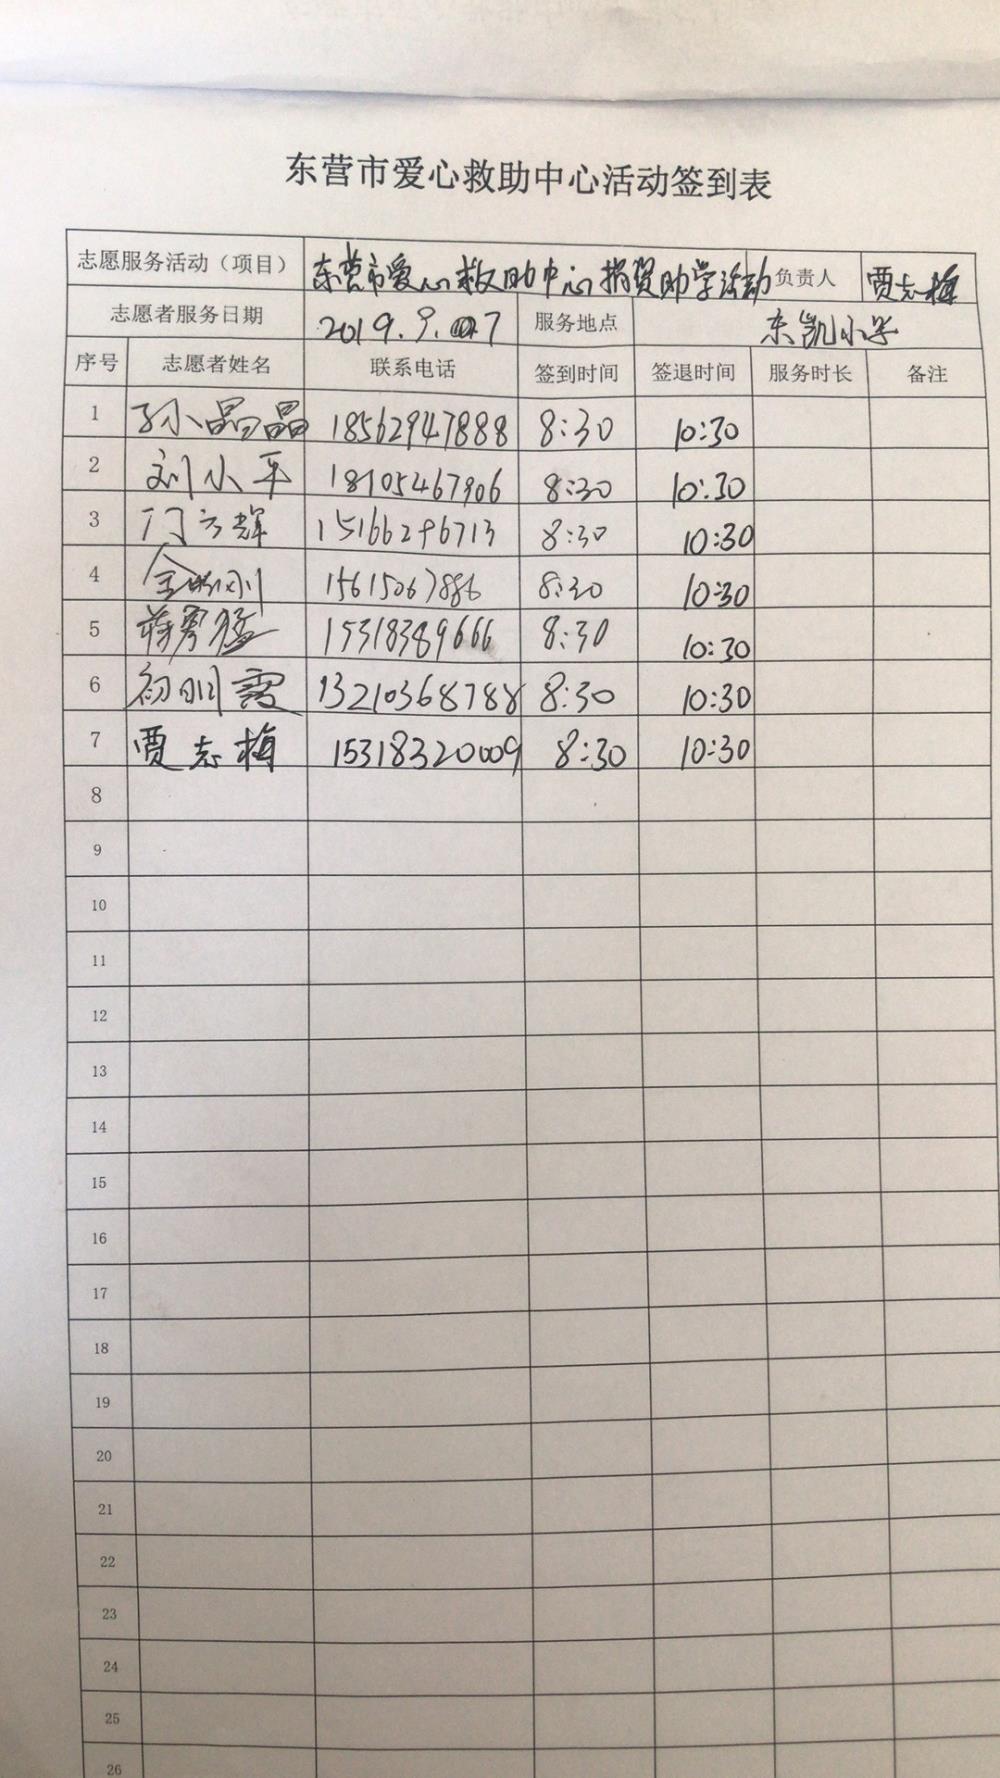 东营市爱心救助中心活动签到表
志愿服务活动（项目） 东营市爱心救助中心捐资助学活动 负责人 贾志梅
志愿者服务日期 2019.9.7 服务地点 东凯小学
序号 志愿者姓名 联系电话 签到时间 签退时间 服务时长 备注
1 孙晶晶 18562947888 8:30 10:30
2 刘小平 18105467906 8:30 10:30
3 门云辉 15166296713 8:30 10:30
4 15615067886 8:30 10:30
5 蒋秀猛 15318389666 8:30 10:30
6 初明霞 13210368788 8:30 10:30
7 贾志梅 15318320009 8:30 10:30
8
9
10
11
12
13
14
15
16
17
18
19
20
21
22
23
24
25
26